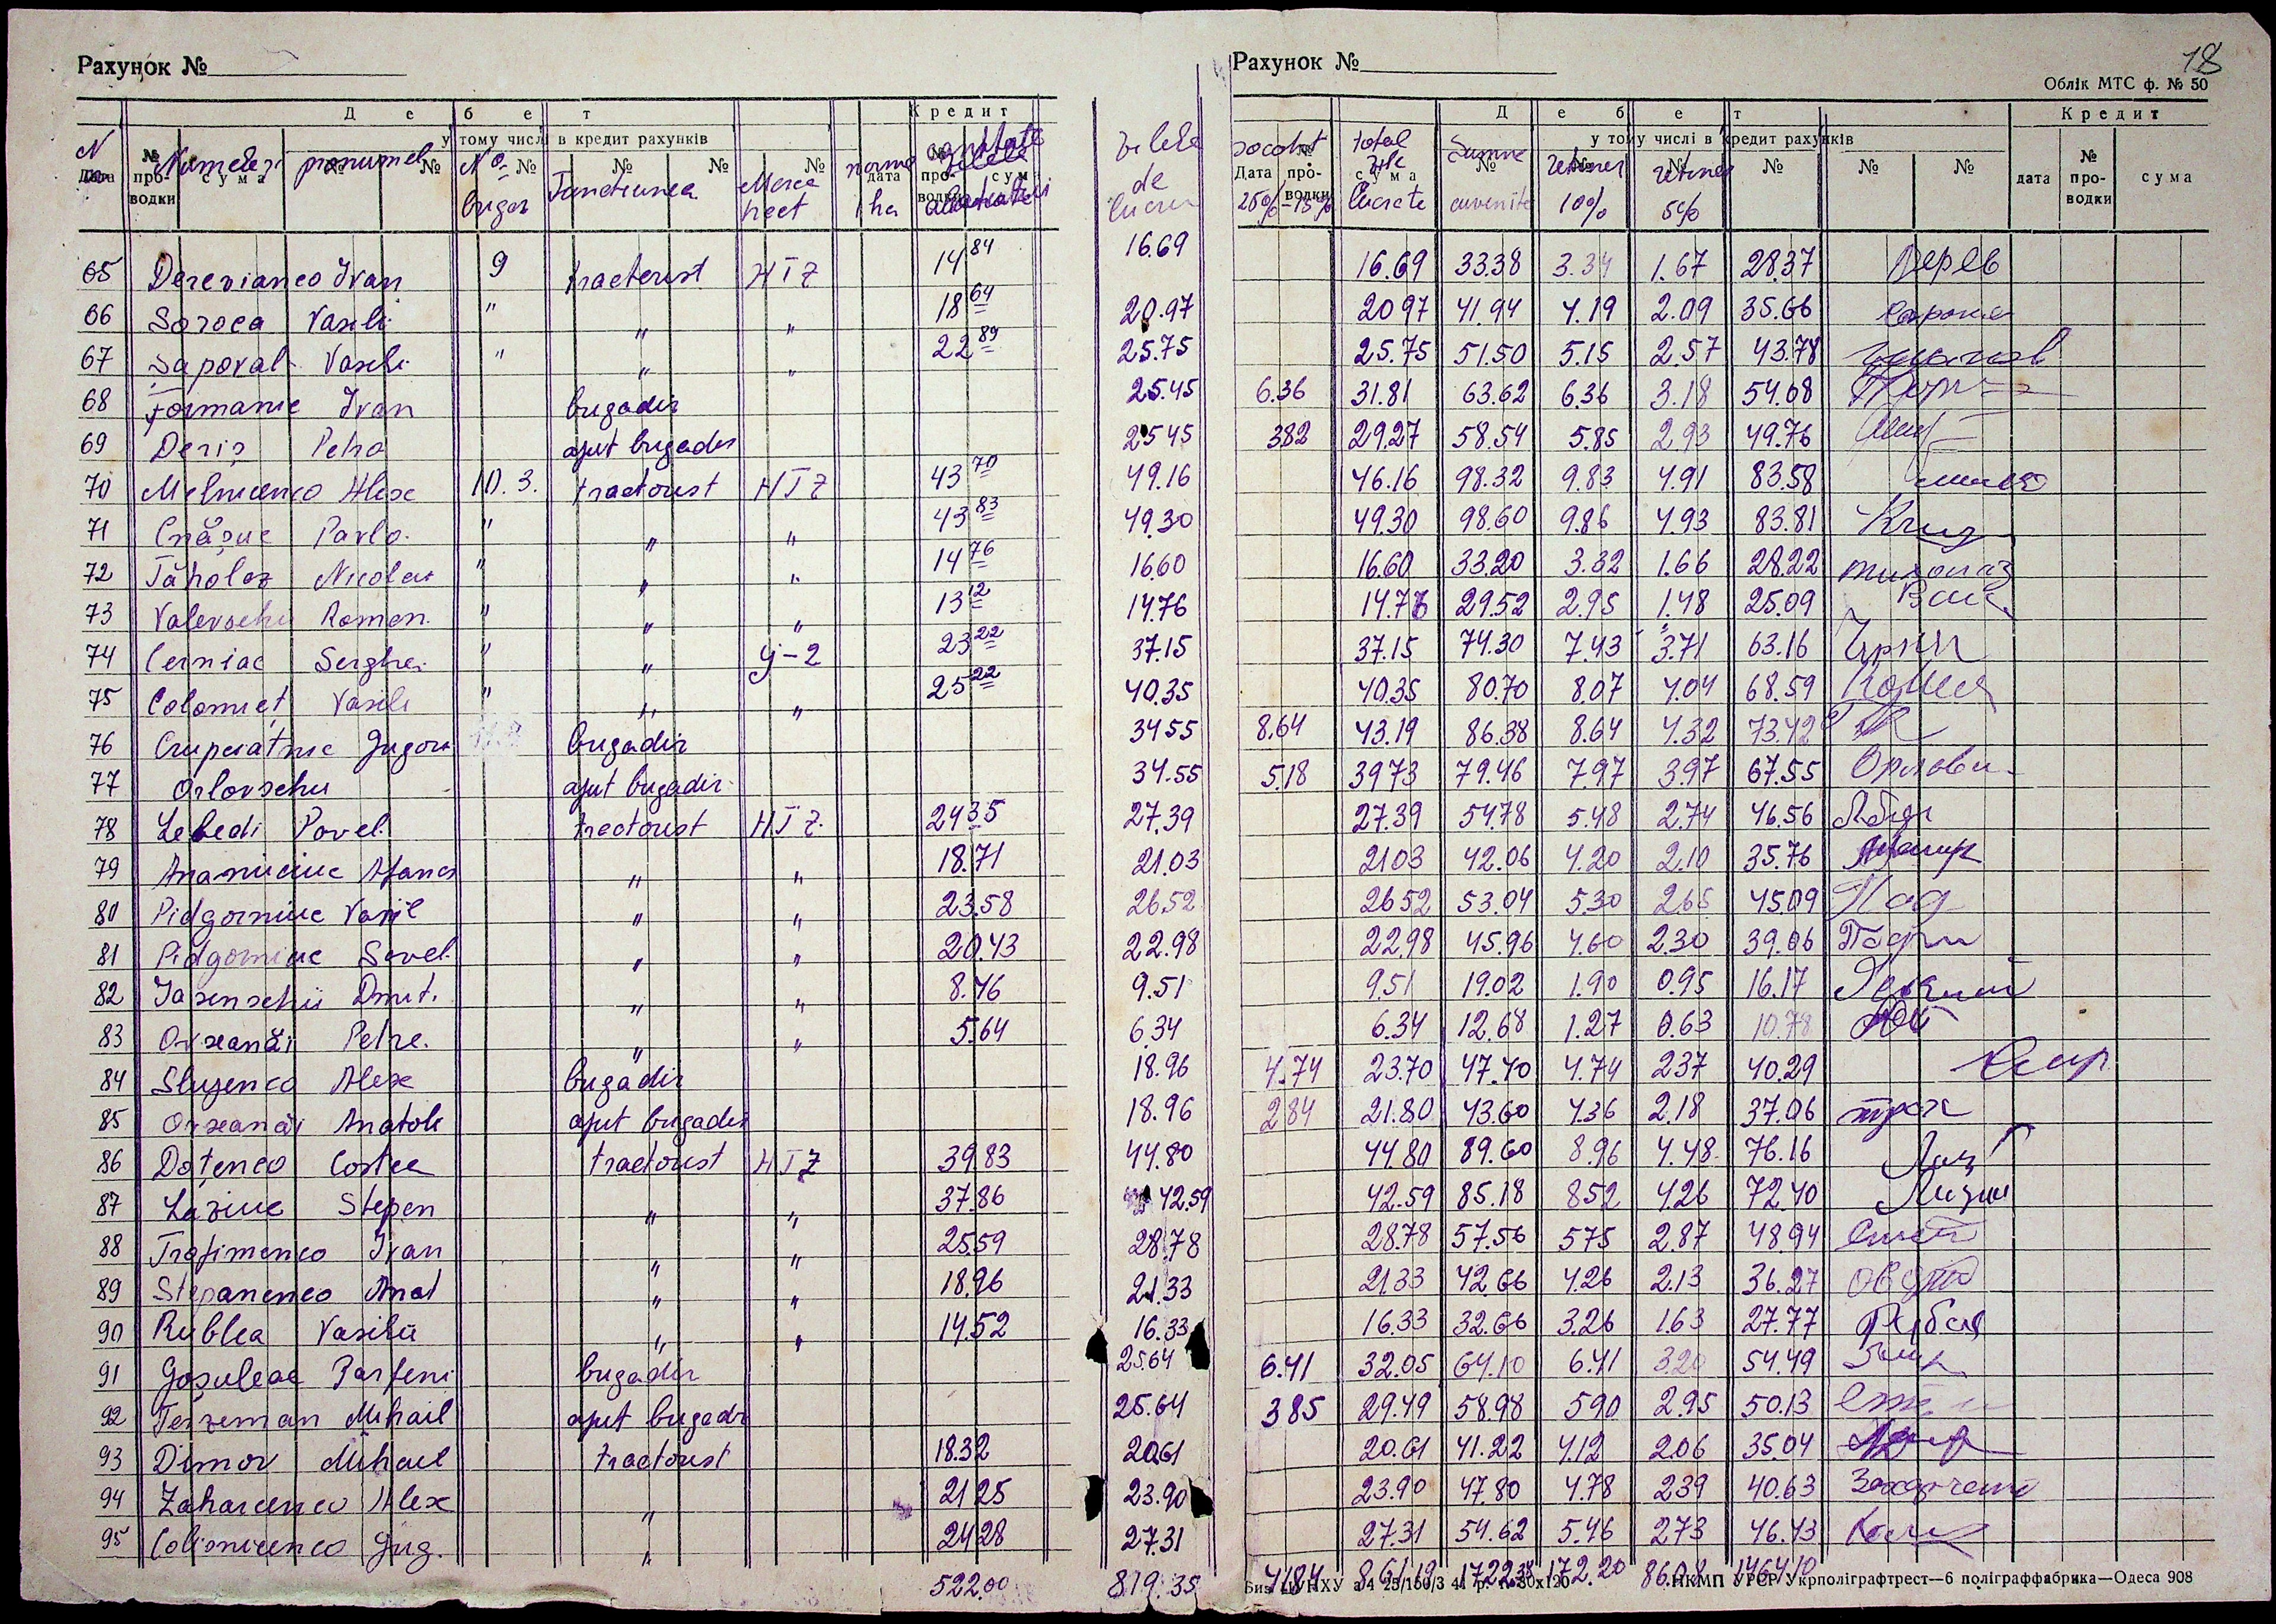 18
Рахунок № Рахунок №
Облік МТС ф. № 50
Дебет Кредит Дебет Кредит
у тому числі в кредит рахунків у тому числі в кредит рахунків
N Дата № проводки сума Numele și pronumel № № No № brigăz № № Functiunea № Marca tract norma 1 ha дата № проводки сума cantitate zilele de lucru Дата № проводки socotit 25%-15% сума total zile lucrate № Sumne cuvenite № retiner 10% № retiner 5% № № № дата № проводки сума
65 Derevianco Ivan 9 tractorist HTZ 14 84 16.69 16.69 33.38 3.34 1.67 28.37 Дерев
66 Soroca Vasili " " " 18 64 20.97 20 97 41.94 4.19 2.09 35.66 Сорока
67 Șapoval Vasili " " " 22 89 25.75 25.75 51.50 5.15 2.57 43.78
68 Formaniuc Ivan brigadir 25.45 6.36 31.81 63.62 6.36 3.18 54.08
69 Deriș Petro ajut brigadir 25 45 382 29.27 58.54 5.85 2.93 49.76
70 Melnicenco Alex 10. 3. tractorist HTZ 43 70 49.16 46.16 98.32 9.83 4.91 83.58
71 Cnășuc Pavlo " " " 43 83 49.30 49.30 98.60 9.86 4.93 83.81
72 Tăholoz Nicolai " " " 14 76 16.60 16.60 33.20 3.32 1.66 28.22
73 Valevschi Roman " " " 13 12 14.76 14.76 29.52 2.95 1.48 25.09
74 Cerniac Serghei " " У-2 23 22 37.15 37.15 74.30 7.43 3.71 63.16
75 Colomieț Vasili " " " 25 22 40.35 40.35 80.70 8.07 4.04 68.59
76 Crupcatnic Grigore brigadir 34 55 8.64 43.19 86.38 8.64 4.32 73.42
77 Orlovschii ajut brigadir 34.55 5.18 39 73 79.46 7.97 3.97 67.55 Орлови
78 Lebedi Pavel tractorist HTZ 24 35 27.39 27.39 54.78 5.48 2.74 46.56
79 Ananiciuc Afanas " " 18.71 21.03 21 03 42.06 4.20 2.10 35.76
80 Pidgorniuc Vasil " " 23.58 26.52 26 52 53.04 5.30 2.65 45.09 Под
81 Pidgorniuc Savel " " 20.43 22.98 22.98 45.96 4.60 2.30 39.06
82 Iasenschii Dmit. " " 8.46 9.51 9.51 19.02 1.90 0.95 16.17
83 Ovseanăi Petre. " " 5.64 6.34 6.34 12.68 1.27 0.63 10.78
84 Slușenco Alex brigadir 18.96 4.74 23.70 47.40 4.74 2.37 40.29
85 Ovseanăi Anatoli ajut brigadir 18.96 2 84 21.80 43.60 4.36 2.18 37.06
86 Doțenco Costea tractorist HTZ 39.83 44.80 44.80 89.60 8.96 4.48 76.16
87 Laziuc Stepan " " 37.86 42.59 42.59 85.18 852 4.26 72.40
88 Trofimenco Ivan " " 25.59 28.78 28.78 57.56 575 2.87 48.94
89 Stepanenco Anat " " 18.96 21.33 21.33 42.66 4.26 2.13 36.27
90 Rublea Vasilii " " 14.52 16.33 16.33 32.66 3.26 1.63 27.77
91 Goșuleac Parfeni brigadir 25.64 6.41 32.05 64.10 6.41 3.20 54.49
92 Terzeman Mihail ajut brigadi 25.64 3 85 29.49 58.98 590 2.95 50.13
93 Dimov Mihail tractorist 18.32 20.61 20.61 41.22 4.12 2.06 35.04
94 Zaharcenco Alex " 21 25 23.90 23.90 47.80 4.78 239 40.63
95 Colimicenco Grig. " 24 28 27.31 27.31 54.62 5.46 273 46.43
522.00 819.35 41.84 861.19 1722.38 172.20 86.08 1464.10
НКМП УРСР Укрполіграфтрест—6 поліграффабрика—Одеса 908